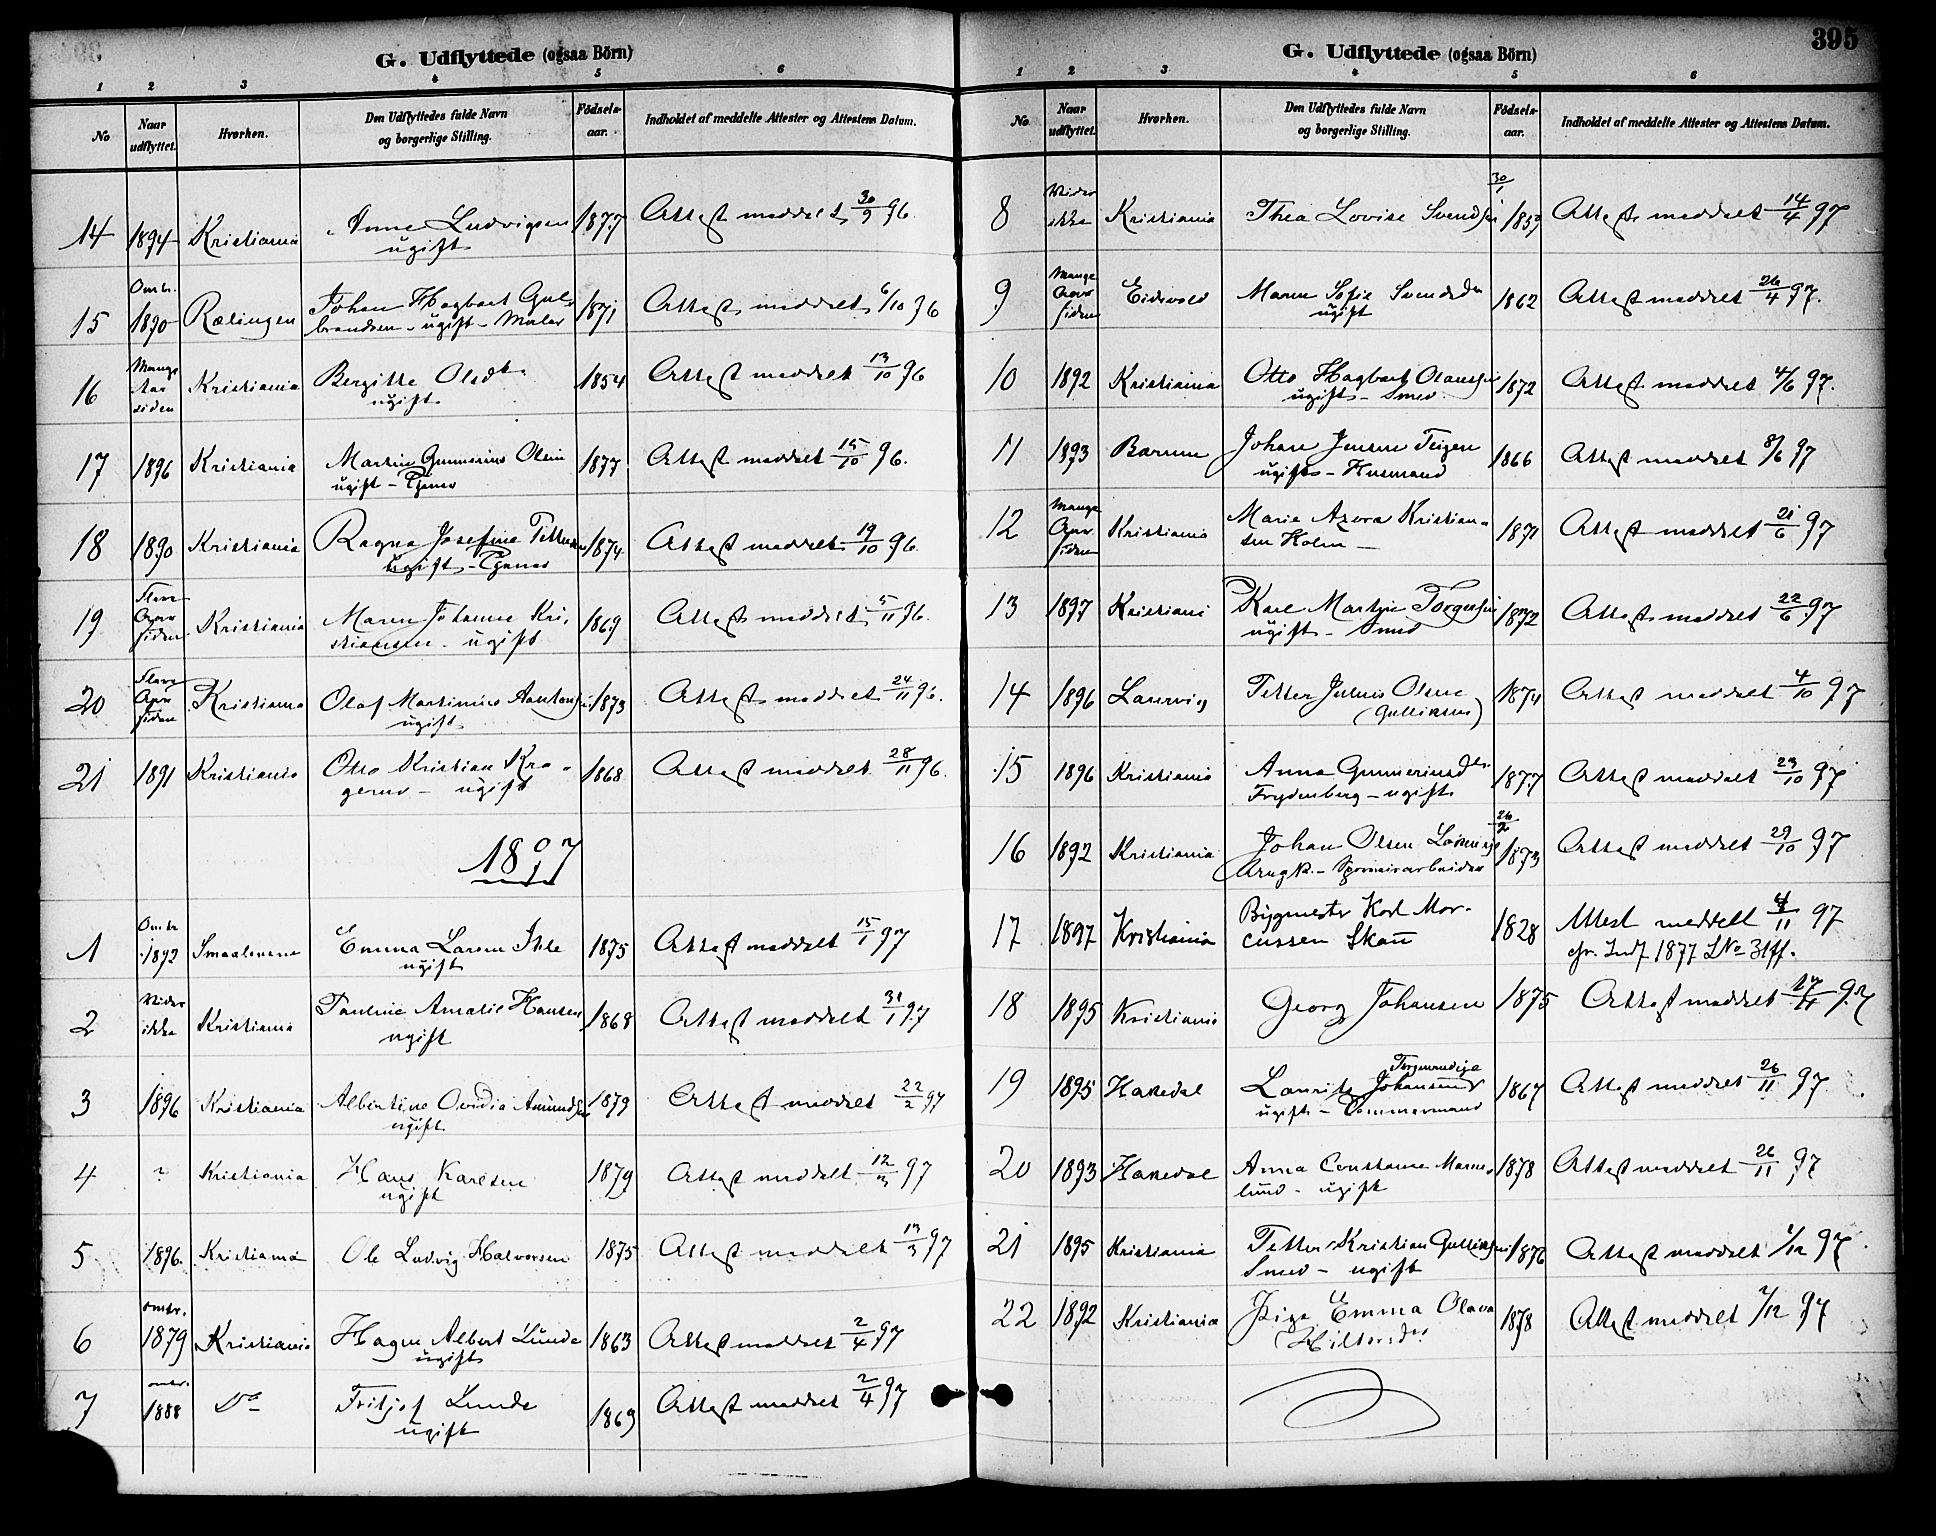 G. Udflyttede (ogsaa Börn)
1 2 3 4 5 6
No Naar udflyttet. Hvorhen. Den Udflyttedes fulde Navn og borgerlige Stilling. Fødselsaar. Indholdet af meddelte Attester og Attestens Datum.
14 1894 Kristiania Anne Ludvigsen 1877 Attest meddelt 30/9 96.
ugift
15 Omtr. 1890 Rælingen Johan Hagbart Gul- 1871 Attest meddelt 6/10 96
brandsen - ugift - Maler
16 Mange Aar siden Kristiania Bergitte Olsdtr 1854 Attest meddelt 13/10 96
ugift.
17 1896 Kristiania Martin Gunnerius Olsen 1877 Attest meddelt 15/10 96.
ugift - Tjener
18 1890 Kristiania Ragna Josefine Pettersen 1874 Attest meddelt 19/10 96.
ugift - Tjener
19 Flere Aar siden Kristiania Maren Johanne Kri- 1869 Attest meddelt 5/11 96.
stiansen - ugift
20 Flere Aar siden Kristiania Olaf Martinius 1873 Attest meddelt 24/11 96.
ugift
21 1891 Kristiania Otto Kristian Kra- 1868 Attest meddelt 28/11 96.
gerud - ugift
1897
1 Omtr 1892 Smaalenene Emma Laren 1875 Attest meddelt 15/1 97
ugift
2 Vides ikke Kristiania Pauline Amalie Hansen 1868 Attest meddelt 31/1 97
ugift
3 1896 Kristiania Albertine Ovidia Amundsen 1879 Attest meddelt 22/2 97
ugift
4 ? Kristiania Hans Karlsen 1879 Attest meddelt 12/3 97
ugift
5 1896. Kristiania Ole Ludvig Halvorsen 1875 Attest meddelt 13/3 97
6 omtr. 1879 Kristiania Hagen Albert Lunde 1863 Attest meddelt 2/4 97
ugift
7 omtr. 1888 Do Fritjof Lunde 1869 Attest meddelt 2/4 97
ugift
395
G. Udflyttede (ogsaa Börn)
1 2 3 4 5 6
No. Naar udflyttet. Hvorhen. Den Udflyttedes fulde Navn og borgerlige Stilling. Fødselsaar. Indholdet af meddelte Attester og Attestens Datum.
8 Vides ikke Kristiania Thea Lovise Svendsen 30/1 1859 Attest meddelt 14/4 97
9 Mange Aar siden Eidsvold Maren Sofie Svendsdtr 1862 Attest meddelt 26/4 97.
ugift
10 1892 Kristiania Otto Hagbart Olaussen 1872 Attest meddelt 4/6 97.
ugift - Smed
11 1893 Bærum Johan Jensen Teigen 1866 Attest meddelt 8/6 97
ugift - Husmand
12 Mange Aar siden Kristiania Marie Azora Kristian- 1871 Attest meddelt 21/6 97
sen Holm -
13 1897 Kristiania Karl Martin Torgersen 1872 Attest meddelt 22/6 97
ugift - Smed
14 1896 Laurvig Petter Julius Olsen 1874 Attest meddelt 4/10 97
(Gulliksen)
15 1896 Kristiania Anna Gunneriusdtr 1877 Attest meddelt 29/10 97
Frydenberg - ugift
16 1892 Kristiania Johan Olsen 26/2 1873 Attest meddelt 29/10 97
17 1897 Kristiania Bygmester Karl Mar- 1828 Attest meddelt 4/11 97
cussen Skau cfr. Indf 1877 LNo 31ff.
18 1895 Kristiania Georg Johansen 1875 Attest meddelt 17/11 97
19 1895 Hakedal Laurits Johansen 1867 Attest meddelt 26/11 97
ugift - Tømmermand
20 1893 Hakedal Anna Constanse 1878 Attest meddelt 26/11 97
lund - ugift
21 1895 Kristiania Petter Kristian Gulliksen 1876 Attest meddelt 1/12 97
Smed - ugift
22 1892 Kristiania Pige Emma Olava 1878 Attest meddelt 7/12 97